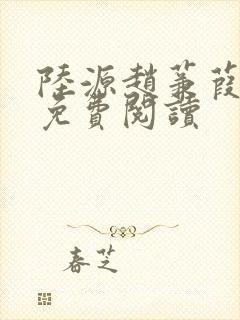 陸源趙蒹葭
免費閱讀
春芝